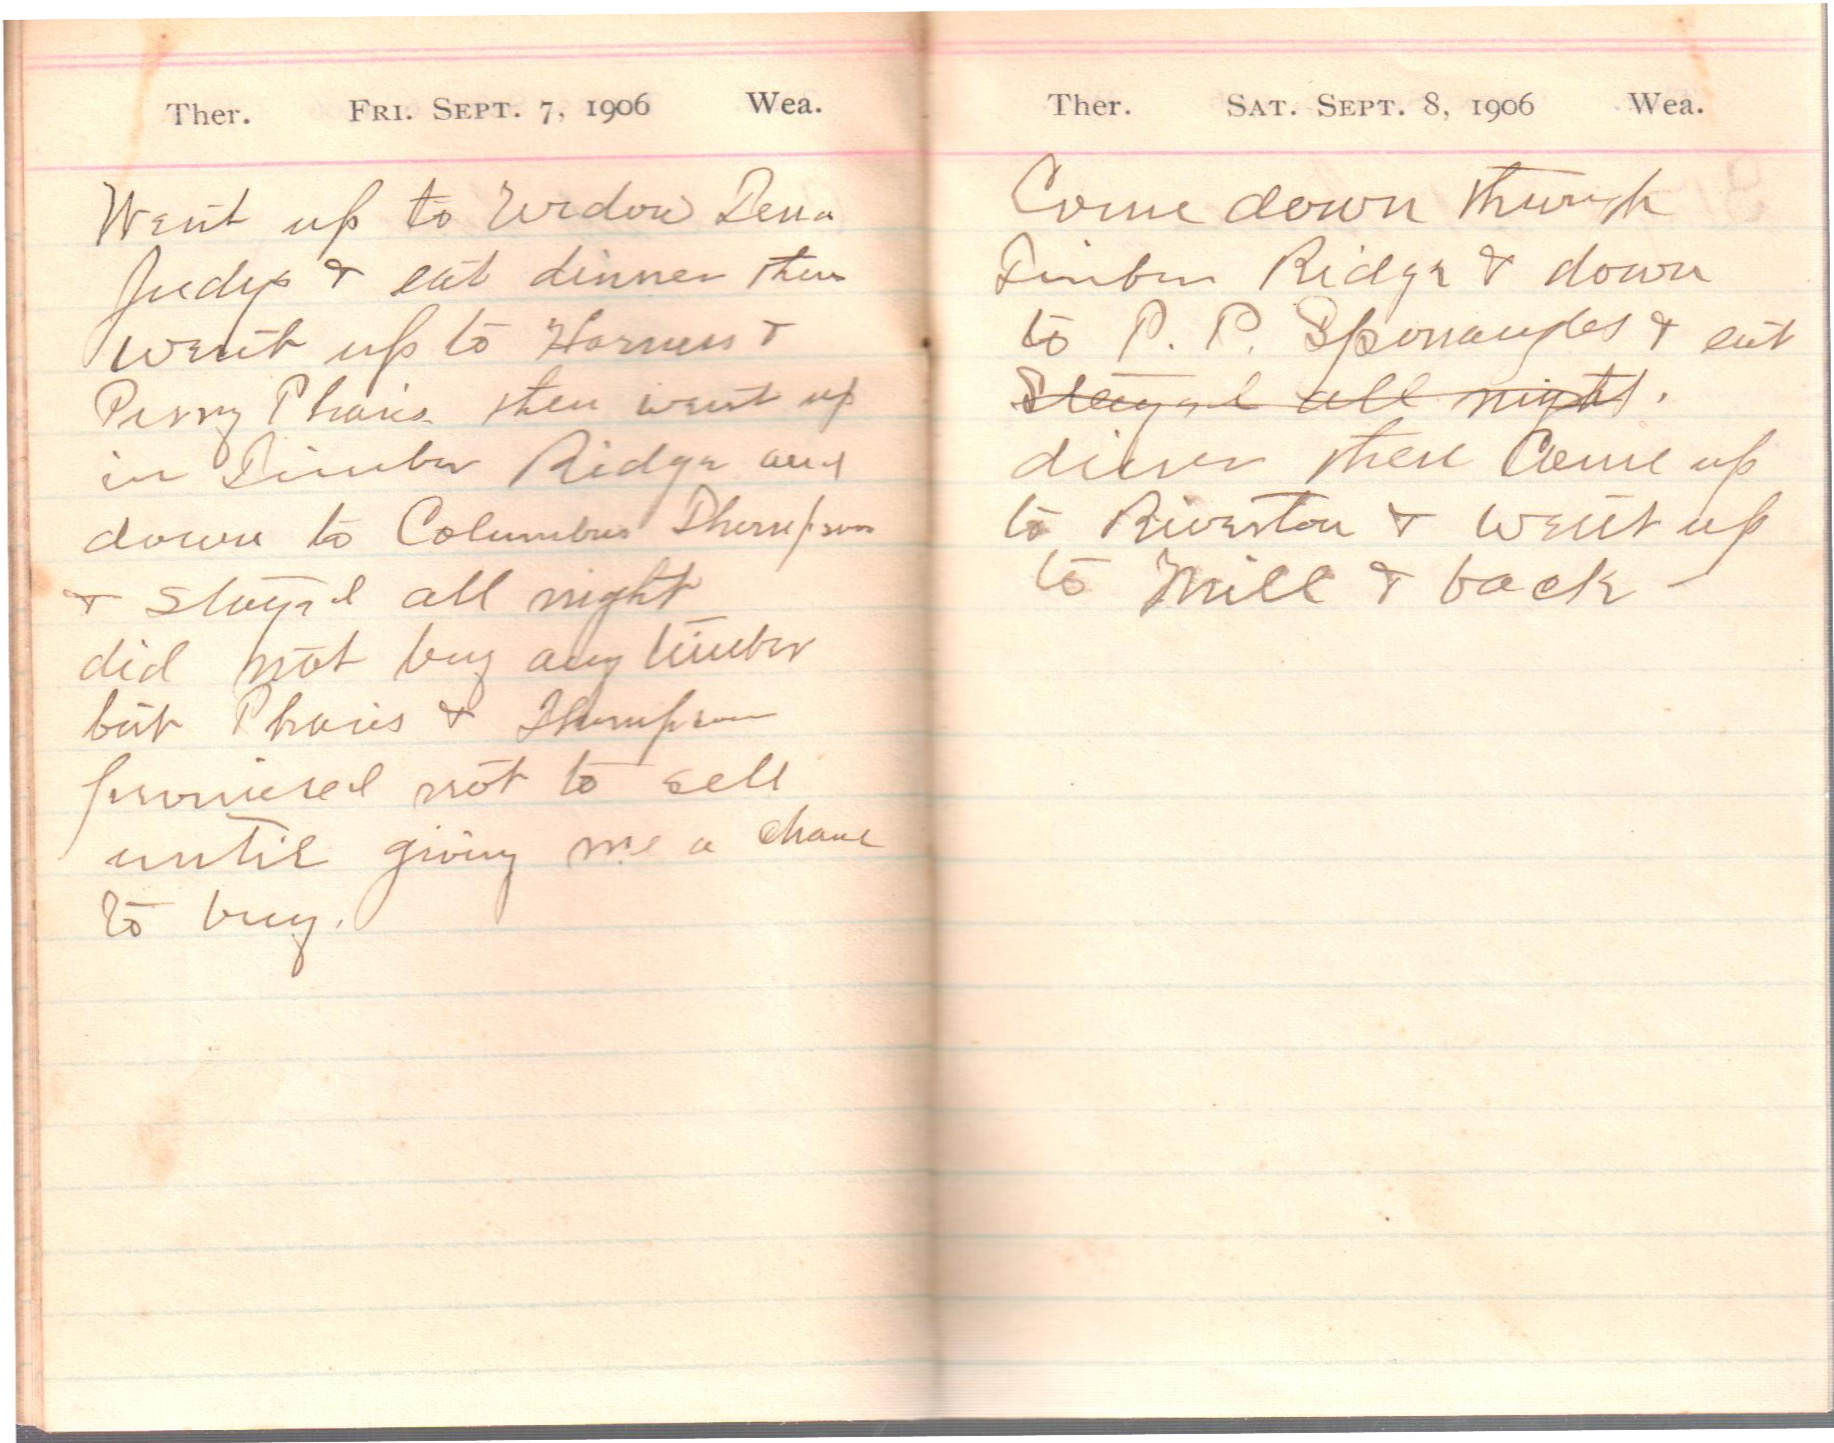 Ther. FRI. SEPT. 7, 1906 Wea.
Went up to Widow Dena
Judys & eat dinner then
went up to Harness &
Perry Phares then went up
in Timber Ridge and
down to Columbus Thompson
& stayed all night
did not buy any timber
but Phares & Thompson
promised not to sell
until giving me a chance
to buy.
Ther. SAT. SEPT. 8, 1906 Wea.
Come down through
Timber Ridge & down
to P. P. Sponaugles & eat
Stayed all night.
diner then Come up
to Riverton & went up
to Mill & back –